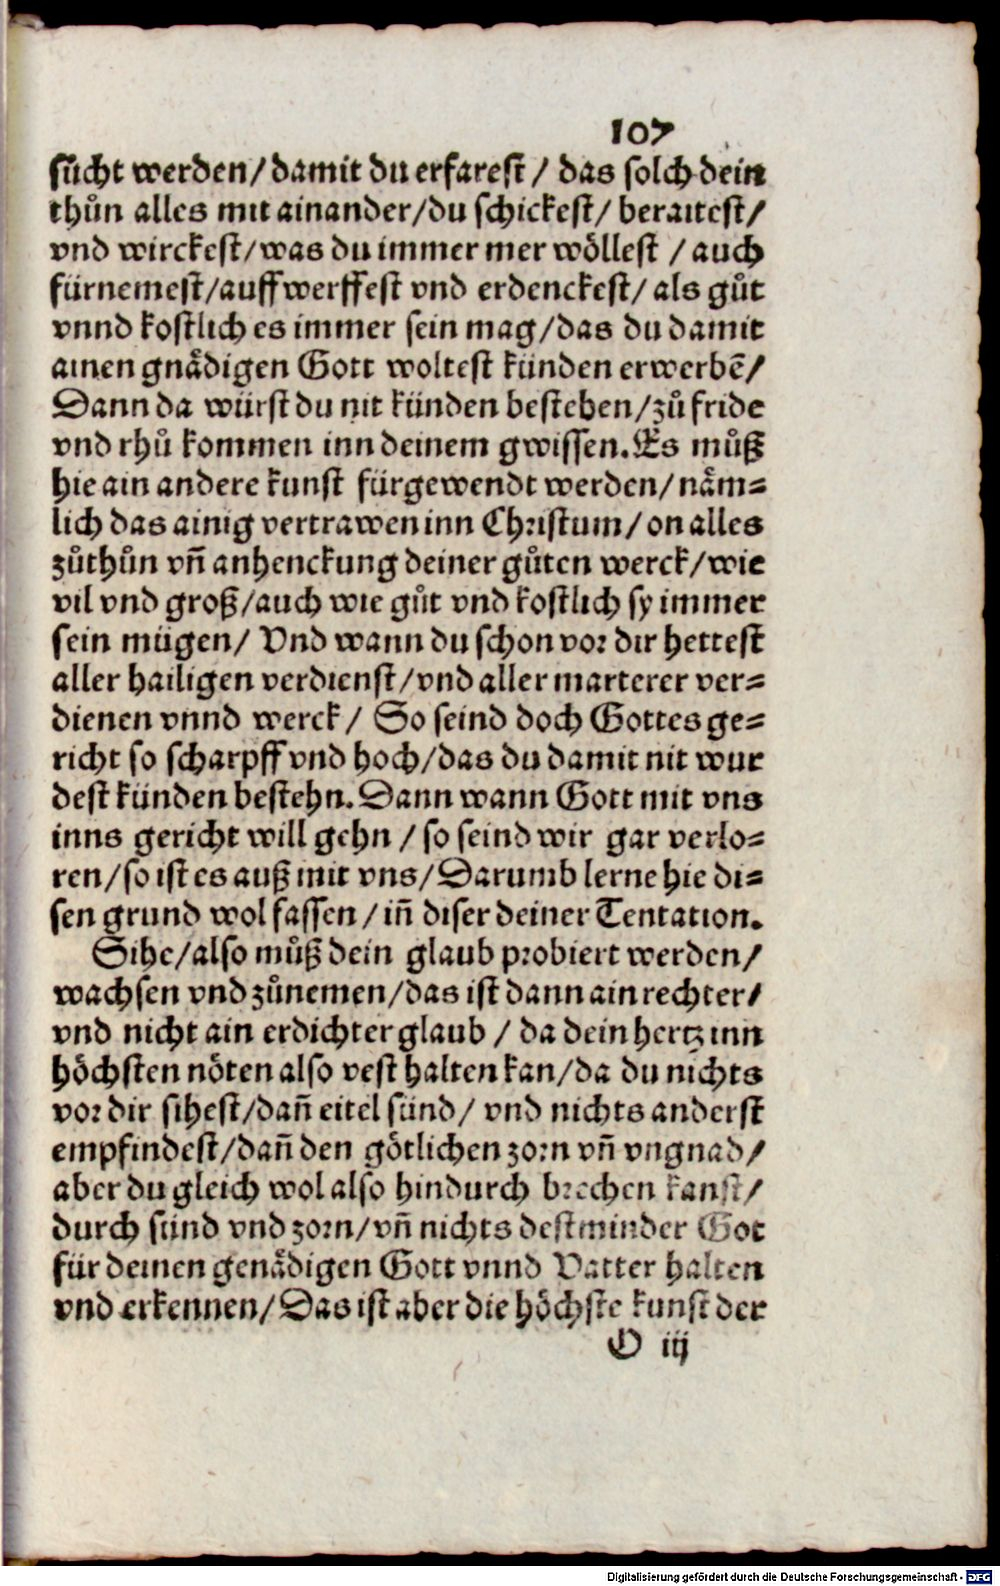 107
sůcht werden/damit du erfarest / das solch dein
thůn alles mit ainander/du schickest/ beraitest/
vnd wirckest/was du immer mer wöllest / auch
fürnemest/auffwerffest vnd erdenckest/ als gůt
vnnd kostlich es immer sein mag/das du damit
ainen gnädigen Gott woltest künden erwerbẽ/
Dann da würst du nit künden bestehen/zů fride
vnd rhů kommen inn deinem gwissen. Es můß
hie ain andere kunst fürgewendt werden/ näm-
lich das ainig vertrawen inn Christum/ on alles
zůthůn vñ anhenckung deiner gůten werck/wie
vil vnd groß/auch wie gůt vnd kostlich sy immer
sein mügen/ Vnd wann du schon vor dir hettest
aller hailigen verdienst/vnd aller marterer ver-
dienen vnnd werck/ So seind doch Gottes ge-
richt so scharpff vnd hoch/das du damit nit wur
dest künden bestehn. Dann wann Gott mit vns
inns gericht will gehn / so seind wir gar verlo-
ren/so ist es auß mit vns/Darumb lerne hie di-
sen grund wol fassen / iñ diser deiner Tentation.
Sihe/also můß dein glaub probiert werden/
wachsen vnd zůnemen/das ist dann ain rechter/
vnd nicht ain erdichter glaub / da dein hertz inn
höchsten nöten also vest halten kan/da du nichts
vor dir sihest/dañ eitel sünd/ vnd nichts anderst
empfindest/dañ den götlichen zorn vñ vngnad/
aber du gleich wol also hindurch brechen kanst/
durch sünd vnd zorn/vñ nichts destminder Got
für deinen genädigen Gott vnnd Vatter halten
vnd erkennen/Das ist aber die höchste kunst der
O iij
Digitalisierung gefördert durch die Deutsche Forschungsgemeinschaft - DFG